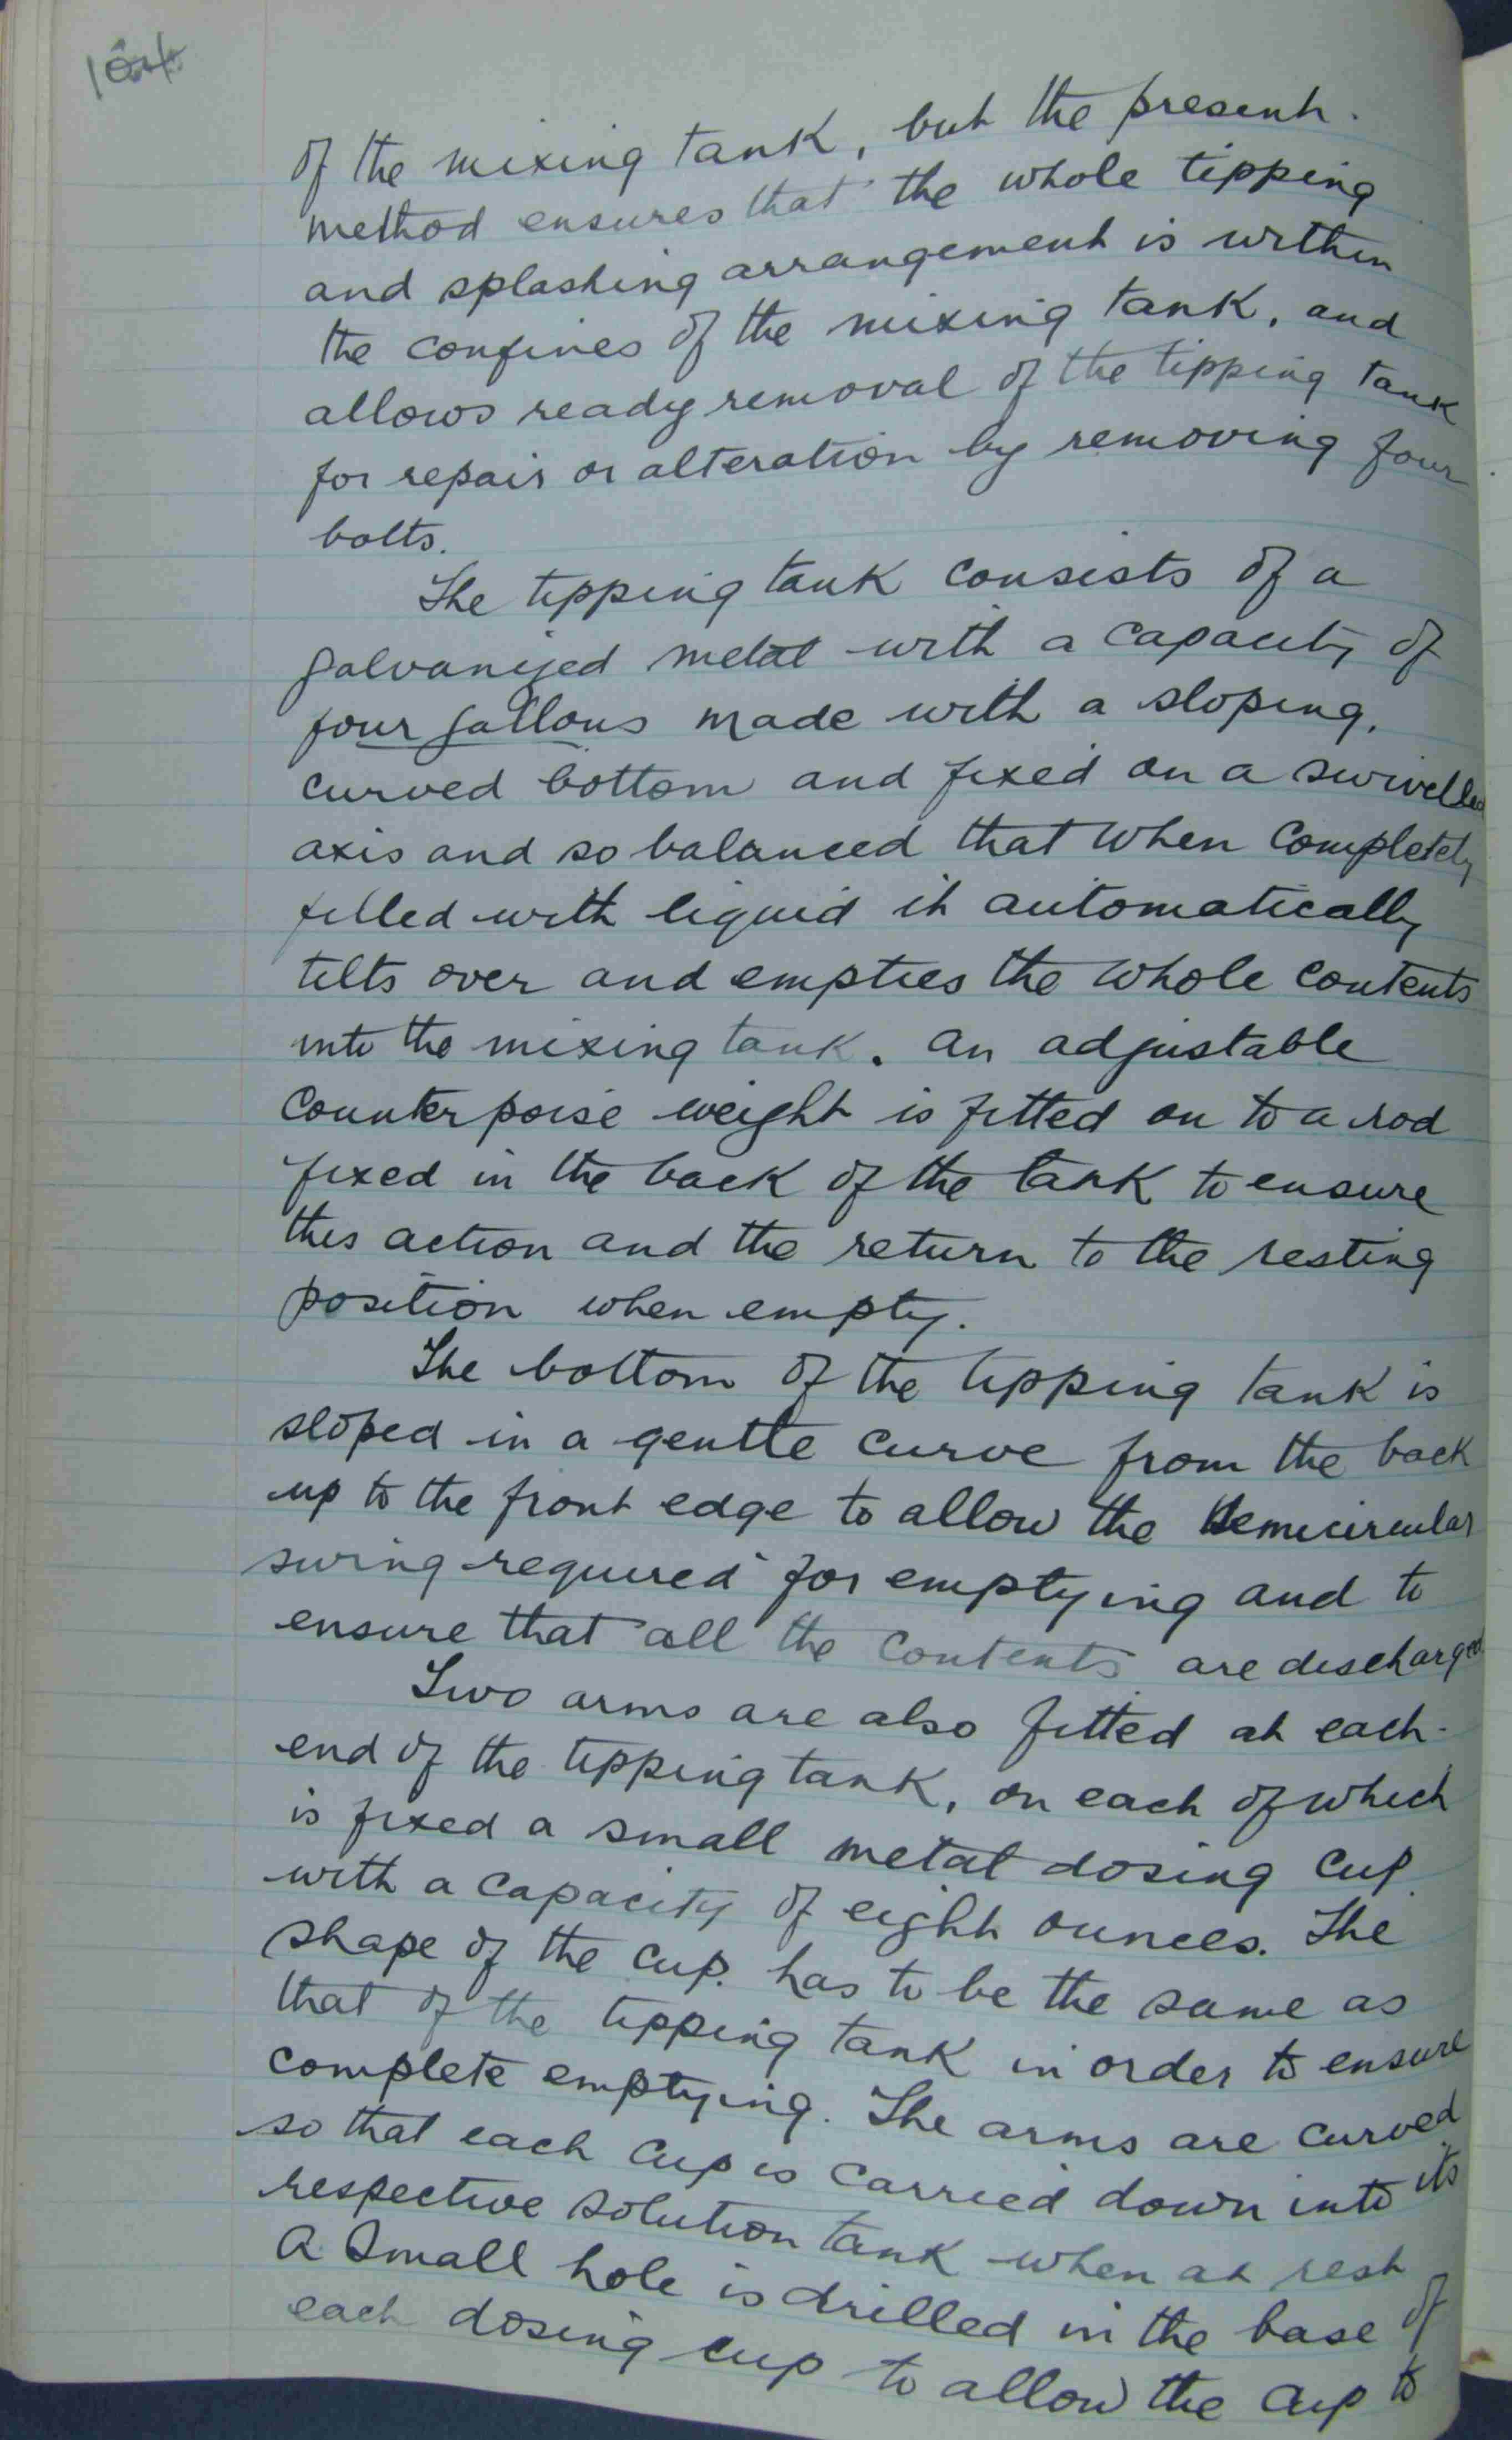 104
of the mixing tank, but the present.
method ensures that the whole tipping
and splashing arrangement is within
the confines of the mixing tank, and
allows ready removal of the tipping tank
for repair or alteration by removing four
bolts.
The tipping tank consists of a
galvanized metal with a capacity of
four gallons made with a sloping,
curved bottom and fixed on a swivelled
axis and so balanced that when completely
filled with liquid it automatically
tilts over and empties the whole contents
into the mixing tank. An adjustable
counterpoise weight is fitted on to a rod
fixed in the back of the tank to ensure
this action and the return to the resting
position when empty.
The bottom of the tipping tank is
sloped in a gentle curve from the back
up to the front edge to allow the semicircular
swing required for emptying and to
ensure that all the contents are discharged
Two arms are also fitted at each
end of the tipping tank, on each of which
is fixed a small metal dosing cup
with a capacity of eight ounces. The
shape of the cup. has to be the same as
that of the tipping tank in order to ensure
complete emptying. The arms are curved
so that each cup is carried down into its
respective solution tank when at rest
A small hole is drilled in the base of
each dosing cup to allow the cup to